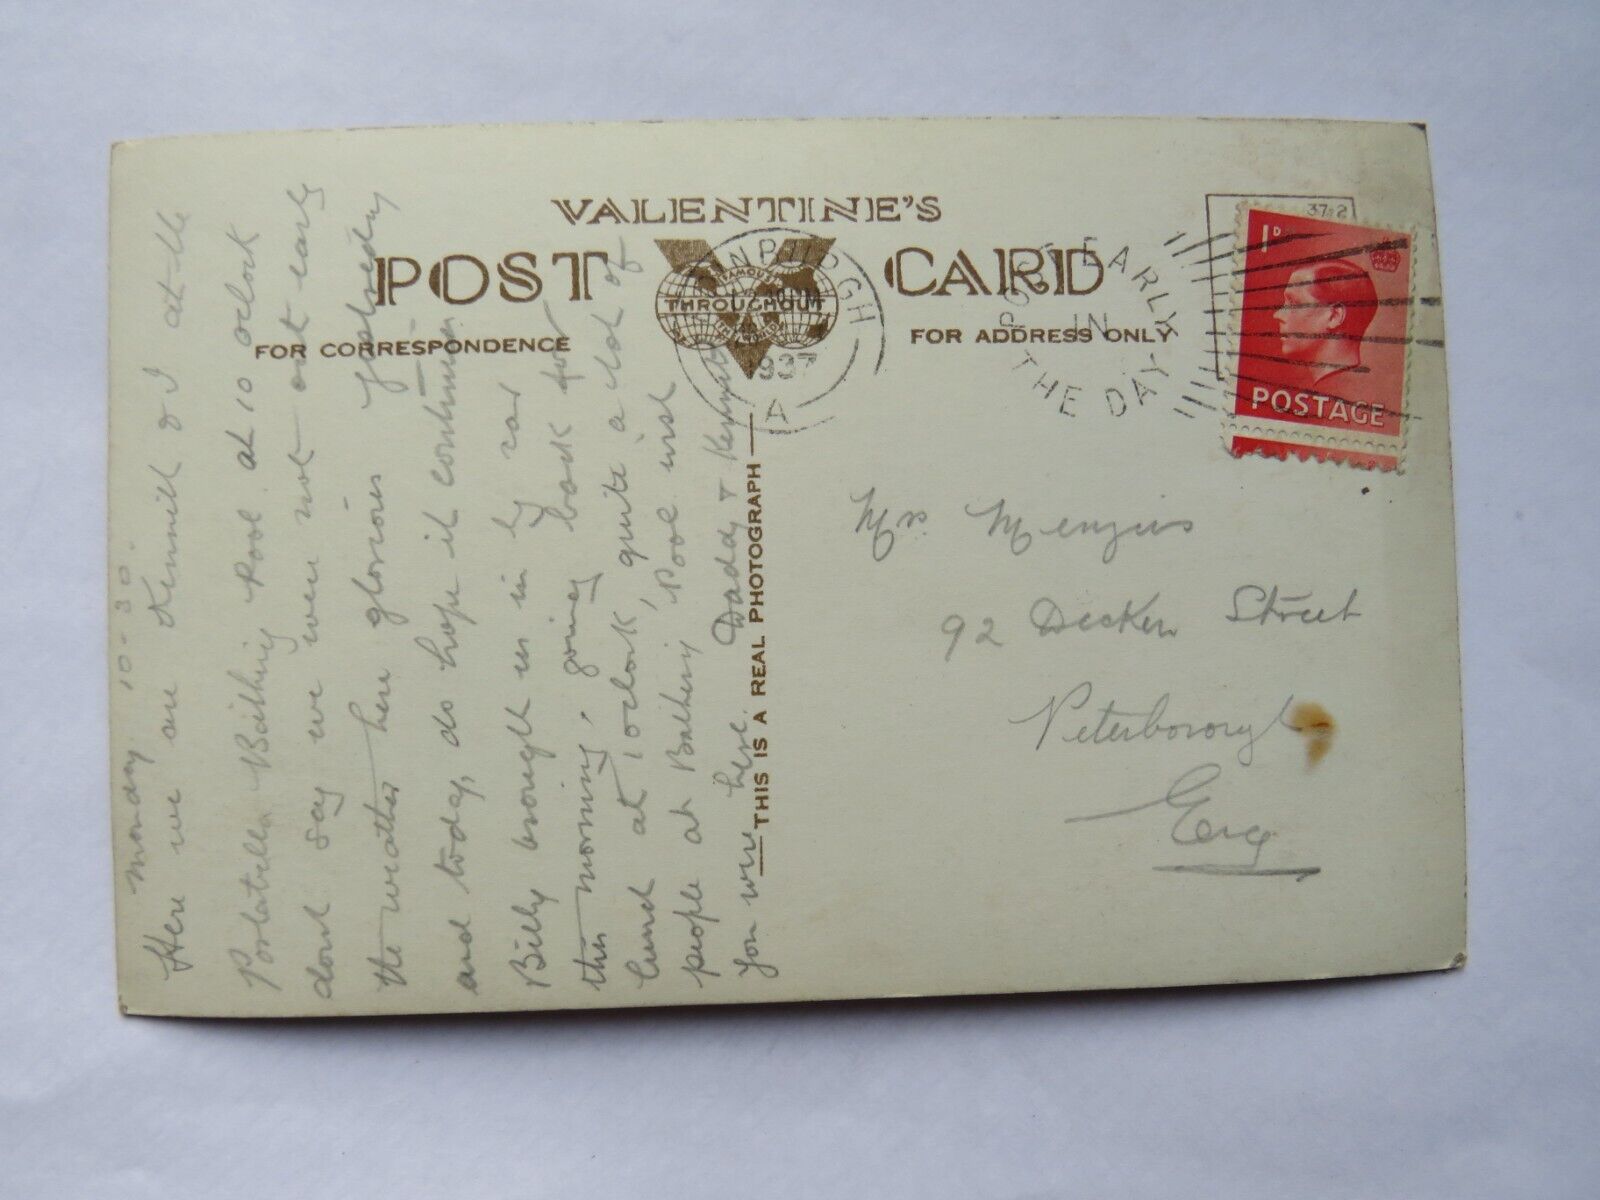 VALENTINE'S
POST CARD
FAMOUS
THROUGHOUT
THE WORLD
FOR CORRESPONDENCE
FOR ADDRESS ONLY
THIS IS A REAL PHOTOGRAPH
1937
A
POST EARLY
IN
THE DAY
37.2
1D
POSTAGE
Monday 10-30.
Here we are & I at the
Bathing Pool at 10 oclock
dont say we were not out early
the weather here glorious yesterday
and today, do hope it continues
Billy brought us in by car
this morning, going back for
at 1 oclock, quite a lot of
people at Bathing Pool wish
you were here. Daddy &
Mrs Menzies
92 Street
Peterborough
Eng